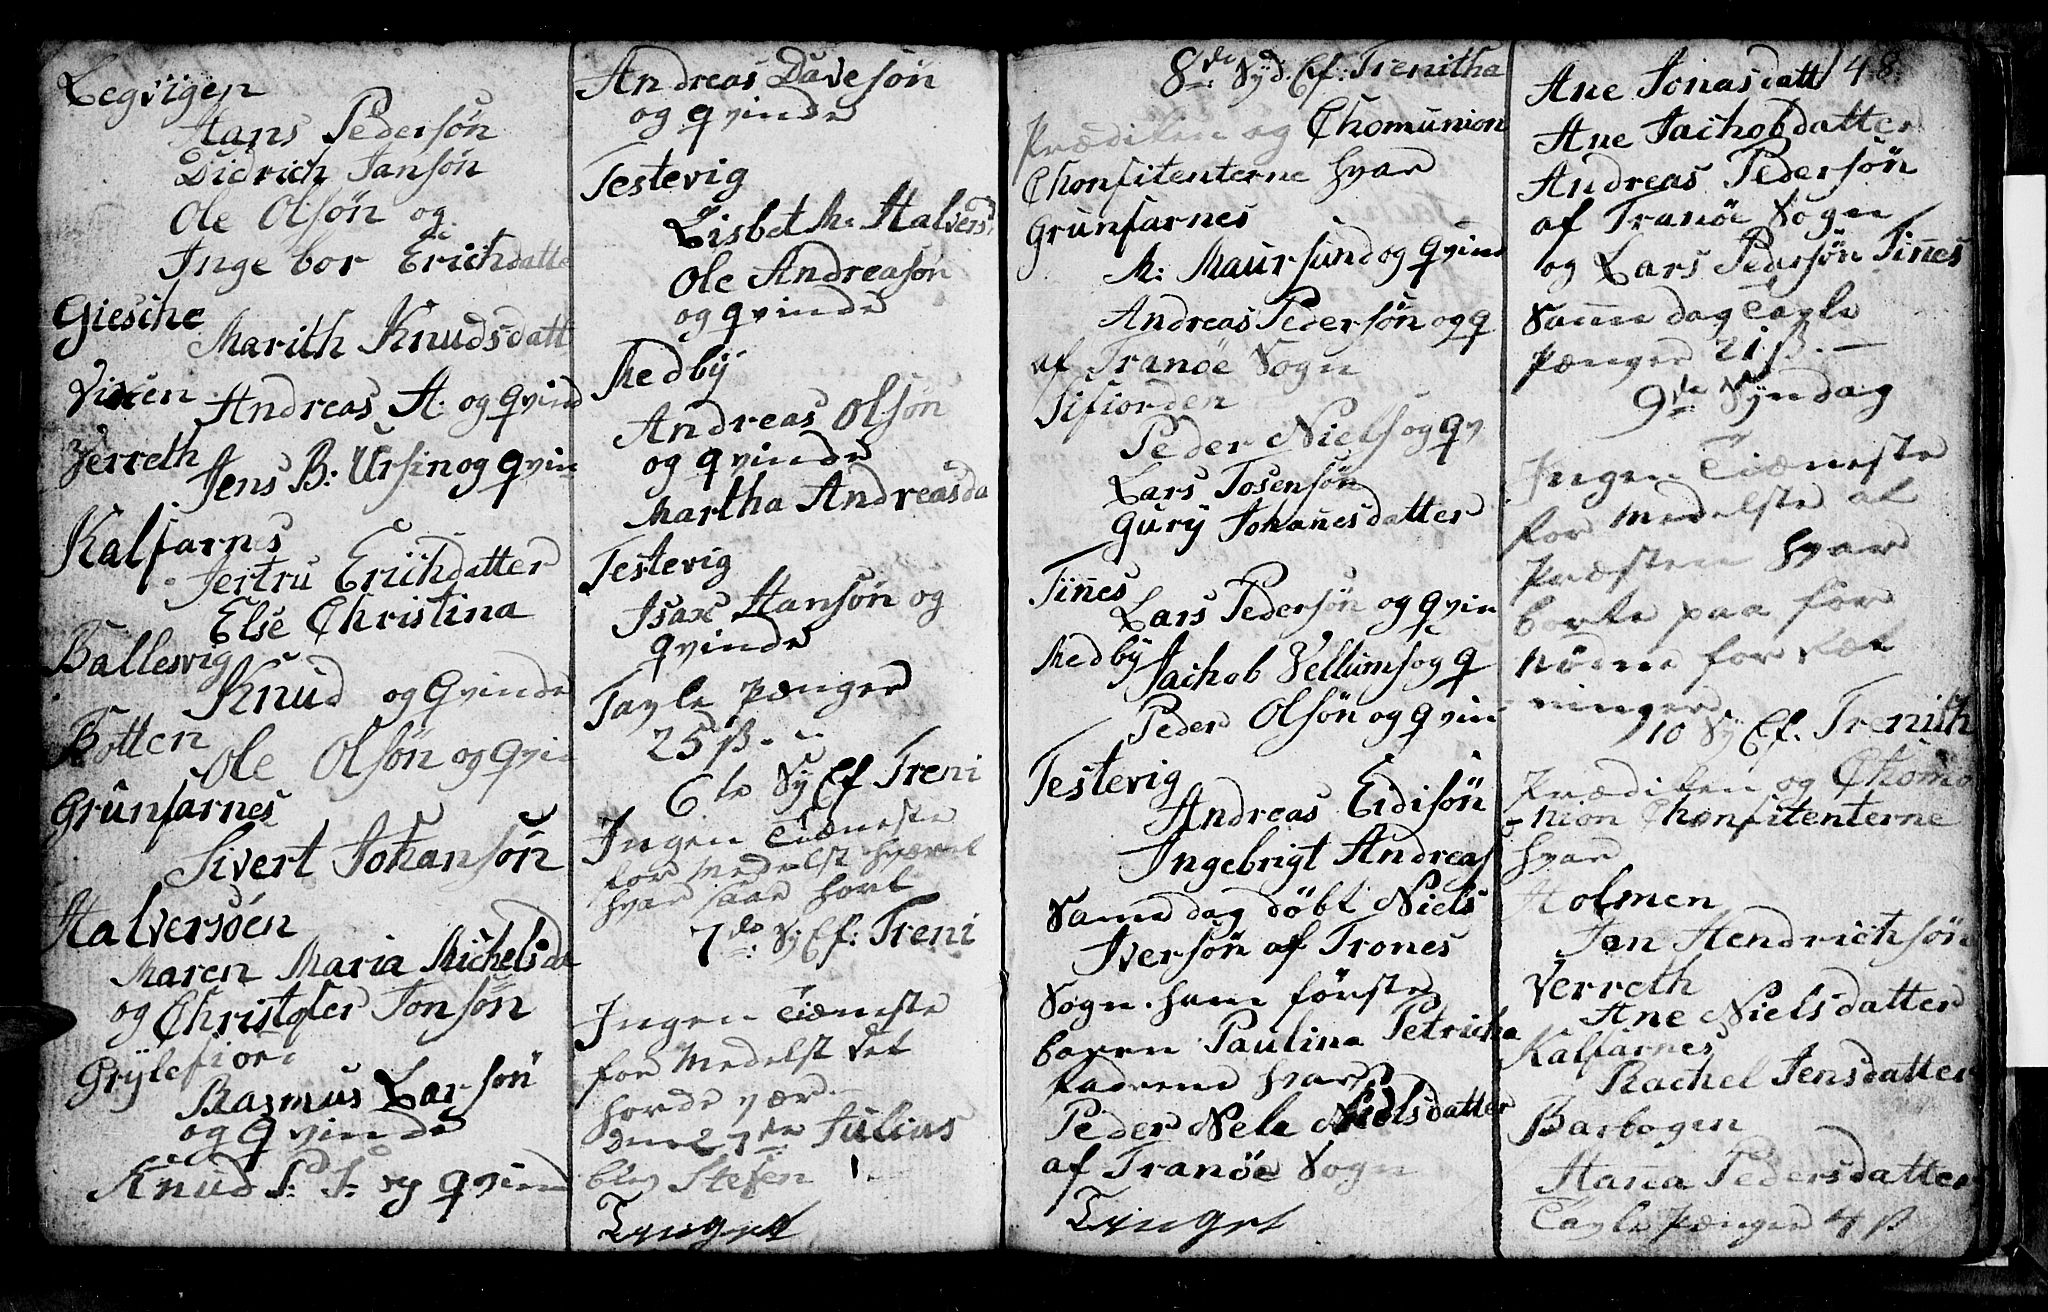 Legvigen
Hans Pedersøn
Didrich Jansøn
Ole Olsøn og
Inge bor Erichdatte
Giesche
Marith Knudsdatt
Vixen
Andreas A: og qvind
Verreth
Jens B: Ursin og qvin
Kalfarnes
Jertru Erichdatter
Else Christina
Ballesvig
Knud og qvinde
Botten
Ole Olsøn og qvi
Grunfarnes
Sivert Johansøn
Halversøen
Maren Maria Michelsda
og Christofer Jonsøn
Gryllefiord
Rasmus Larsøn
og qvinde
Knud P: J: og qvind
Andreas Davesøn
og qvinde
Testevig
Lisbet M: Halvers
Ole Andreasøn
og qvinde
Medby
Andreas Olsøn
og qvinde
Martha Andreasda
Testevig
Isax Hansøn og
qvinde
Tavle pænger
25 ß. -
6te Sy Ef Treni
Ingen Tiæneste
for Medelst
hvar saar hort
7de: Sy Ef: Treni
Ingen Tiæneste
for Medelst det
horde vær
Den 27de Julius
blev Stefen 1.
Tynget
8de: Syd: Ef: Trenitha
Prædiken og Chomunion
Chonfitenterne hvar
Grunfarnes
M: Maursund og qvind
Andreas Pedersøn og q
af Tranøe Sogn
Sifiorden
Peder Niels og qv
Lars Tosensøn
Gury Johanesdatter
Tinnes
Lars Pedersøn og qvin
Medby
Jachob Vellums og q
Peder Olsøn og qvin
Testevig
Andreas Eidisøn
Ingebrigt Andreas
Same dag døbt Niels
Iversøn af Trones
Sogn. ham første
baren Paulina Petricha
fadrene hvar
Peder Nels Nielsdatter
af Tranøe Sogn
Tynget
148
Ane Jonasdatt
Ane Jachobdatter
Andreas Pedersøn
af Tranøe Sogn
og Lars Pedersøn Tinnes
Samme dag Tavle
pænger 21 ß. -
9de Syndag
Ingen Tiæneste
for Medelste at
Præsten hvar
borte paa for
Nødne for ræt
ninger
10 Sy Ef: Trenith
Prædiken og Chomo
-nion Chonfitenterne
hvar
Holmen
Jan Hendrichsøn
Verreth
Ane Nielsdatter
Kalfarnes
Rachel Jensdatter
Barbogen
Hana Pedersdatter
Tavle Pænger 4 ß